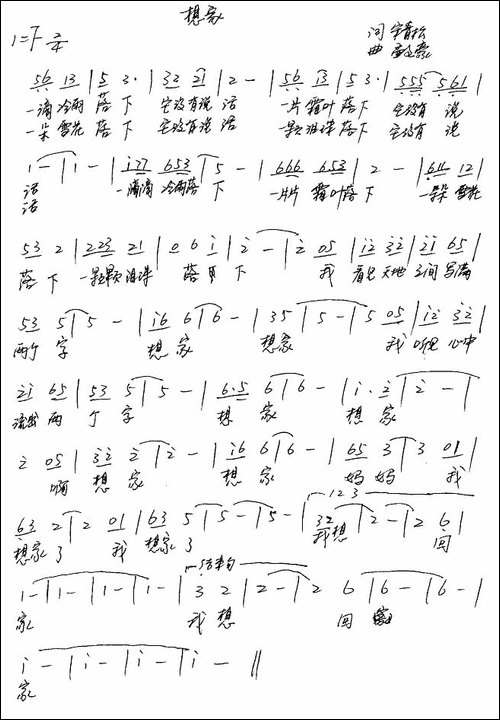 想家
1=F 2/4
词 李青松
曲
56 13 | 5 3· | 32 21 | 2 - | 56 13 | 53· | 555 561 |
一滴 冷雨 落 下 它没有说 话 一片 霜叶 落下 它没有 说
一朵 雪花 落 下 它没有说 话 一颗 泪珠 落下 它没有 说
1 - | 1 - | i77 653 | 5 - | 666 653 | 2 - | 611 12 |
话 一滴滴 冷雨落 下 一片片 霜叶落 下 一朵朵 雪花
话
53 2 | 223 21 | 0 6 i | 2 - | 2 05 | i2 32 | 2i 65 |
落 下 一颗颗 泪珠 落 下 我 看见 天地 之间 写满
53 5 | 5 - | i6 6 | 6 - | 35 5 | 5 - | 5 05 | i2 32 |
两个 字 想 家 想 家 我 听见 心中
2i 65 | 53 5 | 5 - | 6·5 6 | 6 - | i·2 | 2 - |
流出 两 个 字 想 家 想 家
2 05 | 32 2 | 2 - | i6 6 | 6 - | 65 3 | 3 01 |
啊 想 家 想 家 妈 妈 我
63 2 | 2 01 | 63 5 | 5 - | 5 - | 32 2 | 2 - | 2 6 |
1 2 3
想家 了 我 想家 了 我想 回
结束句
1 - | 1 - | 1 - | 1 - | 3 2 | 2 - | 2 6 | 6 - | 6 - |
家 我 想 回
i - | i - | i - | i - ‖
家